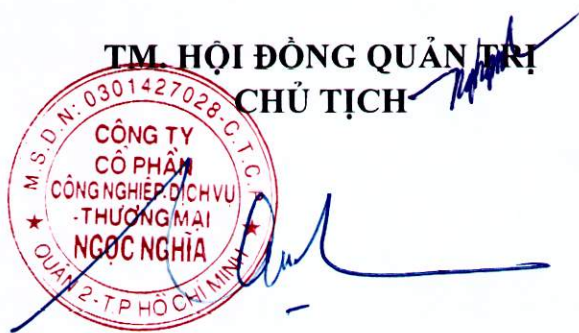 TM. HỘI ĐỒNG QUẢN TRỊ
CHỦ TỊCH
M.S.D.N: 0301427028-C.T.C.P
CÔNG TY
CỔ PHẦN
CÔNG NGHIỆP-DỊCH VỤ
-THƯƠNG MẠI
NGỌC NGHĨA
QUẬN 2-T.P HỒ CHÍ MINH